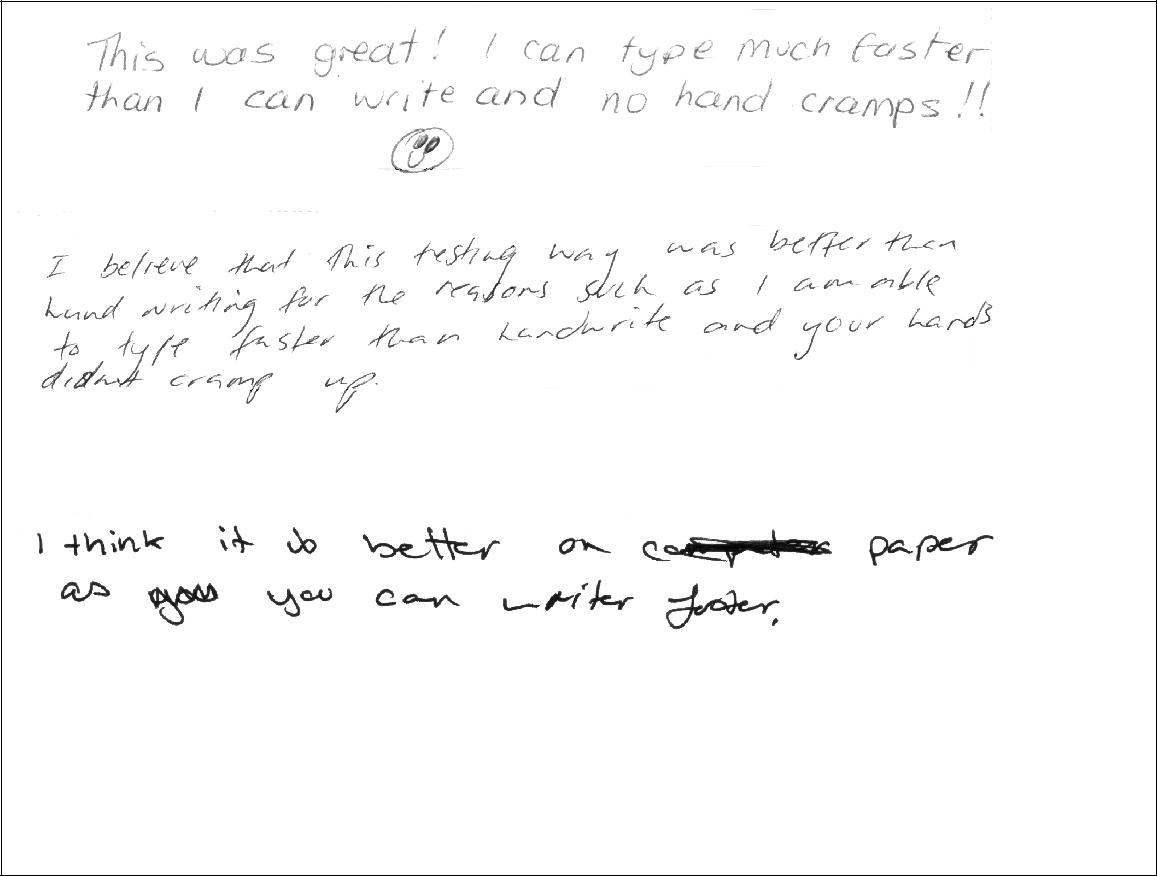 This was great! I can type much faster
than I can write and no hand cramps!!
I believe that this testing way was better than
hand writing for the reasons such as I am able
to type faster than handwrite and your hands
didnt cramp up.
I think it is better on paper
as you you can writer faster.